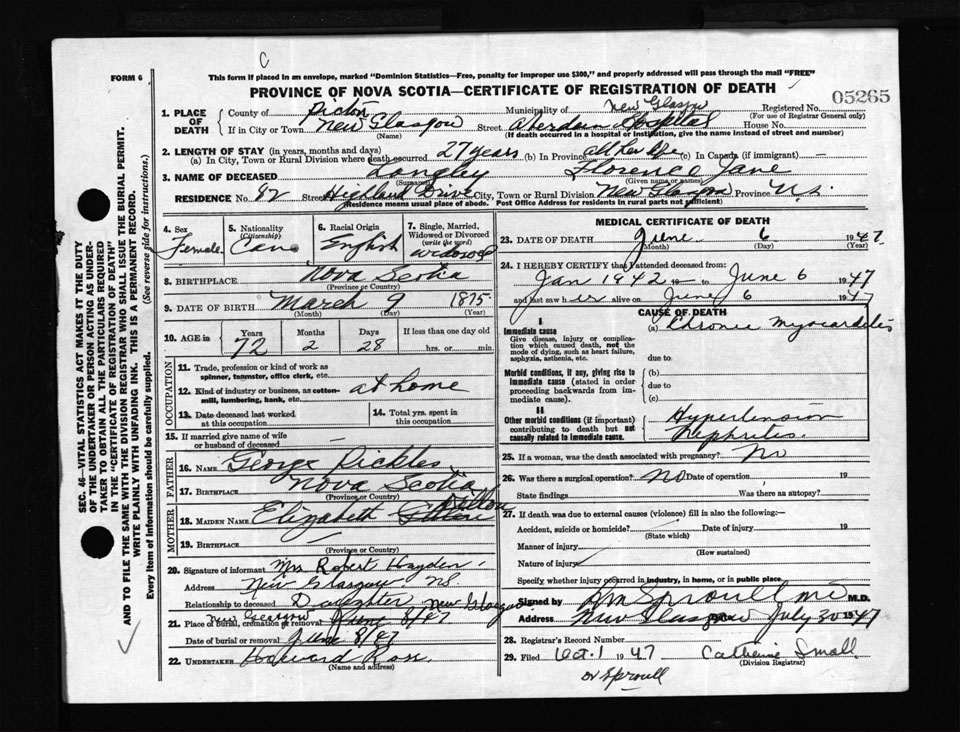 C
FORM 6
This form if placed in an envelope, marked "Dominion Statistics—Free, penalty for improper use $300," and properly addressed will pass through the mail "FREE"
PROVINCE OF NOVA SCOTIA—CERTIFICATE OF REGISTRATION OF DEATH
1. PLACE OF DEATH
County of Pictou Municipality of New Glasgow Registered No. 05265
(For use of Registrar General only)
If in City or Town New Glasgow Street Aberdeen Hospital House No.
(Name) (If death occurred in a hospital or institution, give the name instead of street and number)
2. LENGTH OF STAY (in years, months and days)
(a) In City, Town or Rural Division where death occurred 27 years (b) In Province all her life (c) In Canada (if immigrant) —
3. NAME OF DECEASED Langley Florence Jane
(Surname) (Given name or names)
RESIDENCE No. 82 Street Highland Drive City, Town or Rural Division New Glasgow Province N.S.
(Residence means usual place of abode. Post Office Address for residents in rural parts not sufficient)
4. Sex
Female
5. Nationality
(Citizenship)
Can
6. Racial Origin
English
7. Single, Married, Widowed or Divorced
(write the word)
widowed
8. BIRTHPLACE Nova Scotia
(Province or Country)
9. DATE OF BIRTH March 9 1875
(Month) (Day) (Year)
10. AGE in
Years Months Days If less than one day old
72 2 28 hrs. or min.
OCCUPATION
11. Trade, profession or kind of work as spinner, teamster, office clerk, etc.
12. Kind of industry or business, as cotton-mill, lumbering, bank, etc. at home
13. Date deceased last worked at this occupation
14. Total yrs. spent in this occupation
15. If married give name of wife or husband of deceased —
FATHER
16. NAME George Pickles
17. BIRTHPLACE Nova Scotia
(Province or Country)
MOTHER
18. MAIDEN NAME Elizabeth Dillon
19. BIRTHPLACE —
(Province or Country)
20. Signature of informant Mrs Robert Hayden
Address New Glasgow NS.
Relationship to deceased Daughter
21. Place of burial, cremation or removal New Glasgow New Glasgow June 8/47
Date of burial or removal June 8/47
22. UNDERTAKER Howard Ross
(Name and address)
MEDICAL CERTIFICATE OF DEATH
23. DATE OF DEATH June 6 1947
(Month) (Day) (Year)
24. I HEREBY CERTIFY that I attended deceased from
Jan 1942 to June 6 1947
and last saw her alive on June 6 1947
CAUSE OF DEATH
I
Immediate cause (a) Chronic Myocarditis
Give disease, injury or complication which caused death, not the mode of dying, such as heart failure, asphyxia, asthenia, etc.
due to
Morbid conditions, if any, giving rise to immediate cause (stated in order proceeding backwards from immediate cause).
(b)
due to
(c)
II
Other morbid conditions (if important) contributing to death but not causally related to immediate cause.
Hypertension
Nephritis.
25. If a woman, was the death associated with pregnancy? No
26. Was there a surgical operation? No Date of operation 19
State findings Was there an autopsy?
27. If death was due to external causes (violence) fill in also the following:—
Accident, suicide or homicide? Date of injury 19
(State which)
Manner of injury
(How sustained)
Nature of injury
Specify whether injury occurred in industry, in home, or in public place.
Signed by Sproull md M.D.
Address New Glasgow Date July 30 1947
28. Registrar's Record Number
29. Filed Oct. 1 1947 Catherine Small
(Division Registrar)
Dr Sproull
SEC. 46—VITAL STATISTICS ACT MAKES IT THE DUTY
OF THE UNDERTAKER OR PERSON ACTING AS UNDER-
TAKER TO OBTAIN ALL THE PARTICULARS REQUIRED
IN THE "CERTIFICATE OF REGISTRATION OF DEATH"
AND TO FILE THE SAME WITH THE DIVISION REGISTRAR WHO SHALL ISSUE THE BURIAL PERMIT.
WRITE PLAINLY WITH UNFADING INK. THIS IS A PERMANENT RECORD.
Every item of information should be carefully supplied. (See reverse side for instructions.)